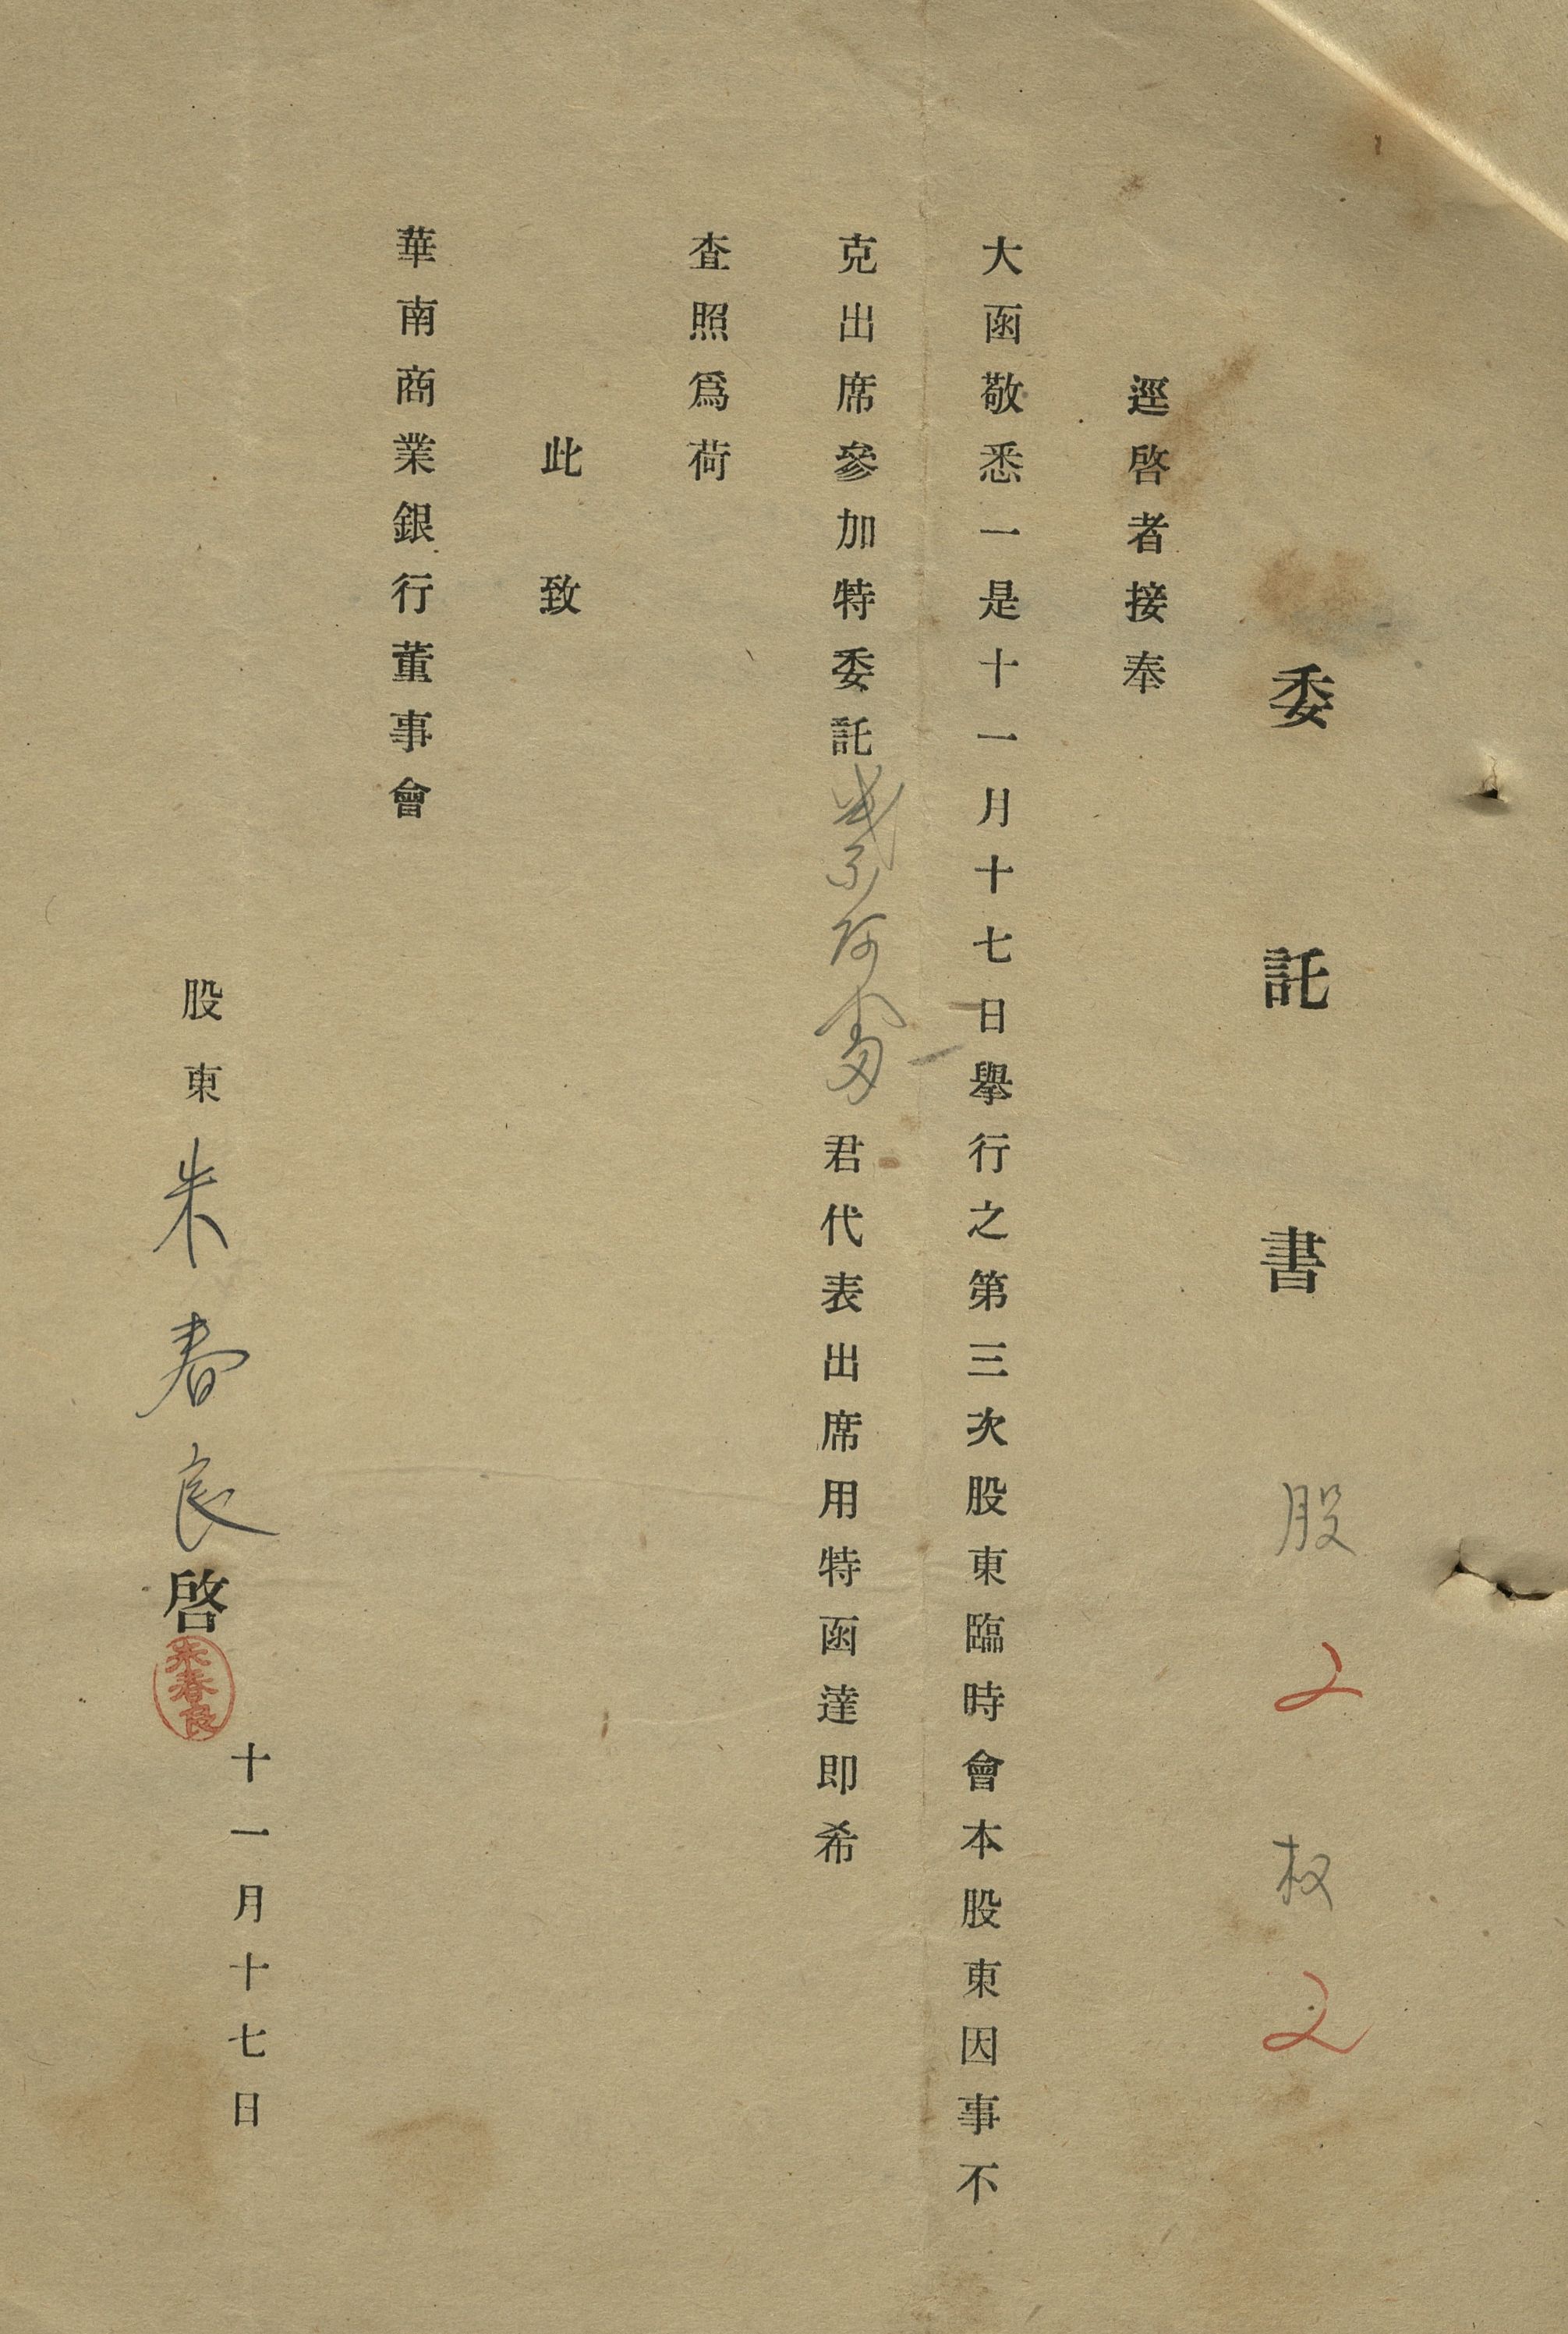 委託書 股 2 权 2
逕啓者接奉
大函敬悉一是十一月十七日舉行之第三次股東臨時會本股東因事不
克出席參加特委託 阿 君代表出席用特函達即希
査照爲荷
此致
華南商業銀行董事會
股東 朱春良 啓
朱春良
十一月十七日